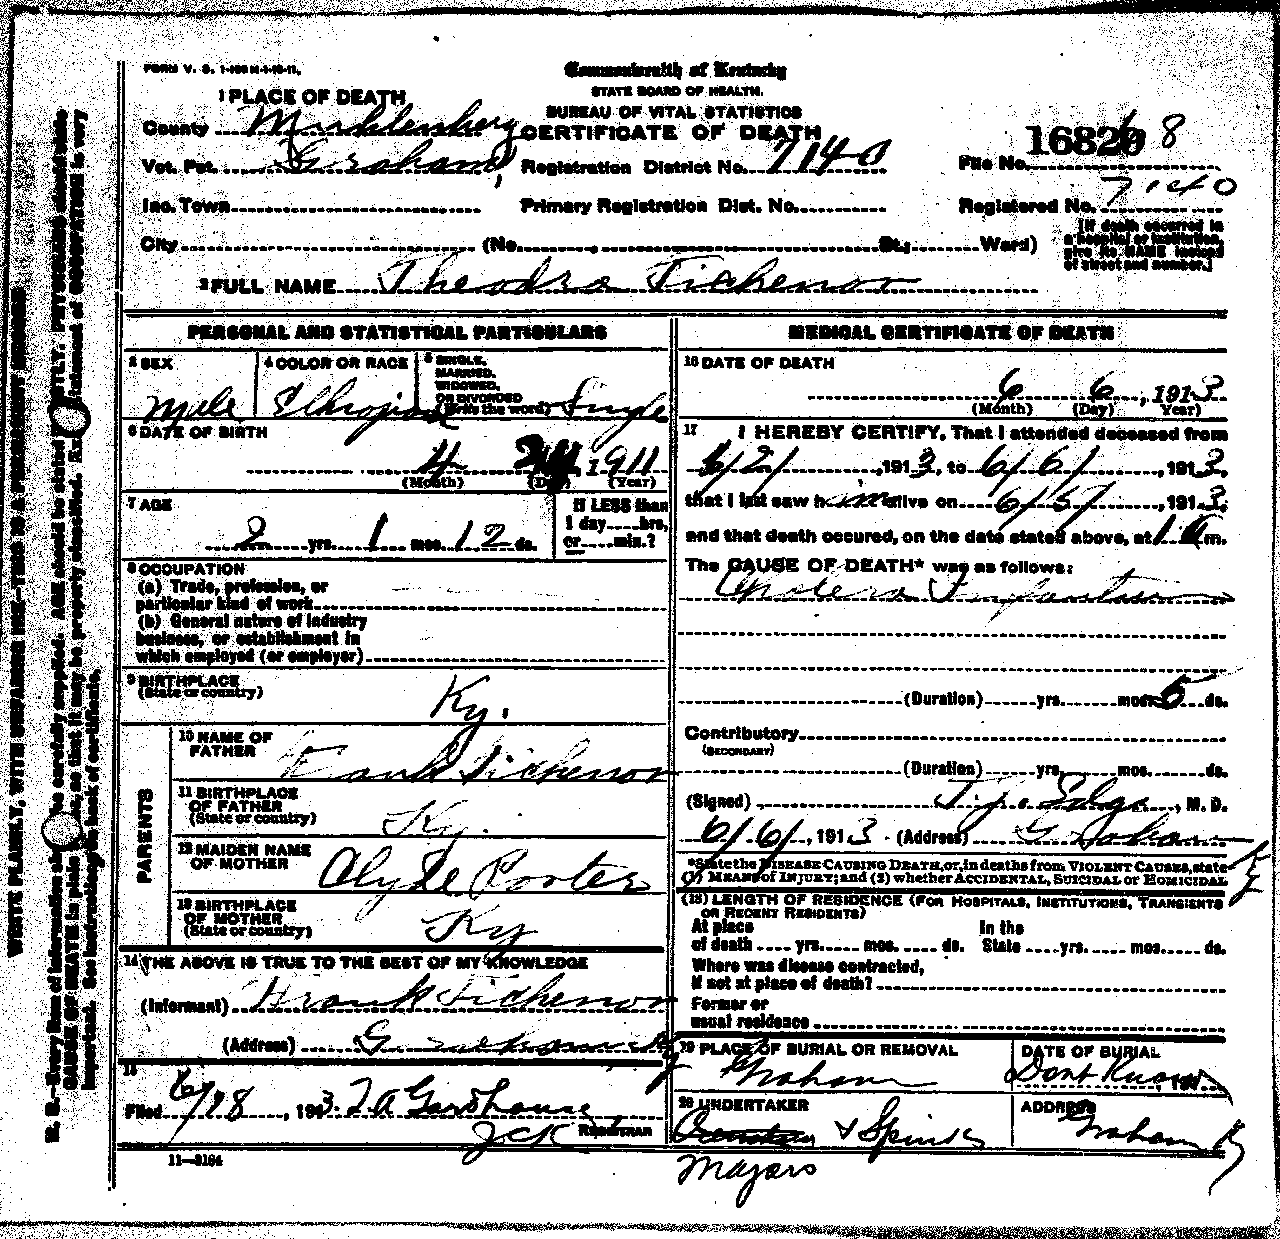 FORM V. S. 1-
Commonwealth of Kentucky
STATE BOARD OF HEALTH.
BUREAU OF VITAL STATISTICS
CERTIFICATE OF DEATH
1 PLACE OF DEATH
County Muhlenberg
Vot. Pct. Graham, Registration District No. 7140
File No. 16828
Inc. Town Primary Registration Dist. No.
Registered No. 7140
City (No. , St.; Ward)
[If death occurred in
a hospital or institution,
give its NAME instead
of street and number.]
2 FULL NAME Theodra Tichenor
PERSONAL AND STATISTICAL PARTICULARS
3 SEX
Male
4 COLOR OR RACE
5 SINGLE,
MARRIED,
WIDOWED,
OR DIVORCED
(Write the word) Single
6 DATE OF BIRTH
4 24, 1911
(Month) (Day) (Year)
7 AGE
2 yrs. 1 mos. 12 ds.
If LESS than
1 day....hrs.
or....min.?
8 OCCUPATION
(a) Trade, profession, or
particular kind of work
(b) General nature of industry
business, or establishment in
which employed (or employer)
9 BIRTHPLACE
(State or country)
Ky.
PARENTS
10 NAME OF
FATHER
Frank Tichenor
11 BIRTHPLACE
OF FATHER
(State or country)
Ky.
12 MAIDEN NAME
OF MOTHER
Clyde Porter
13 BIRTHPLACE
OF MOTHER
(State or country)
Ky
14 THE ABOVE IS TRUE TO THE BEST OF MY KNOWLEDGE
(Informant) Frank Tichenor
(Address) Graham Ky
15
Filed 6/18, 1913 Gardhouse
REGISTRAR
11—3184
MEDICAL CERTIFICATE OF DEATH
16 DATE OF DEATH
6 6, 1913
(Month) (Day) Year)
17 I HEREBY CERTIFY, That I attended deceased from
6/2/, 1913, to 6/6/, 1913,
that I last saw him alive on 6/5/, 1913,
and that death occured, on the date stated above, at 1 a m.
The CAUSE OF DEATH* was as follows:
Cholera Infantum
(Duration) yrs. mos. 5 ds.
Contributory
(SECONDARY)
(Duration) yrs. mos. ds.
(Signed) , M. D.
6/6/, 1913 (Address) Graham Ky
*State the DISEASE CAUSING DEATH, or, in deaths from VIOLENT CAUSES, state
(1) MEANS of INJURY; and (2) whether ACCIDENTAL, SUICIDAL or HOMICIDAL
(18) LENGTH OF RESIDENCE (FOR HOSPITALS, INSTITUTIONS, TRANSIENTS
OR RECENT RESIDENTS)
At place In the
of death .... yrs. .... mos. .... ds. State .... yrs. .... mos. .... ds.
Where was disease contracted,
If not at place of death?
Former or
usual residence
19 PLACE OF BURIAL OR REMOVAL
Graham
DATE OF BURIAL
Dont Know, 191
20 UNDERTAKER
& Spinks
Mayors
ADDRESS
Graham Ky
WRITE PLAINLY, WITH UNFADING INK—THIS IS A PERMANENT RECORD
N. B.—Every item of information should be carefully supplied. AGE should be stated EXACTLY. PHYSICIANS should state
CAUSE OF DEATH in plain terms, so that it may be properly classified. Exact statement of OCCUPATION is very
important. See instructions on back of certificate.